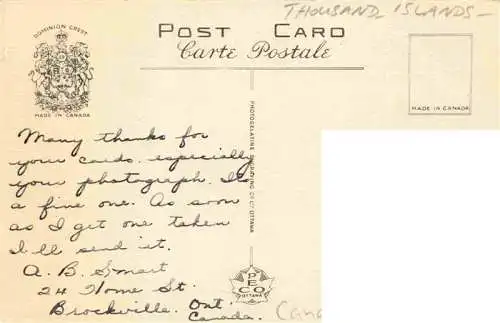 THOUSAND ISLANDS -
POST CARD
Carte Postale
DOMINION CREST
MADE IN CANADA
MADE IN CANADA
PHOTOGELATINE ENGRAVING CO. LT. OTTAWA
Many thanks for
your cards, especially
your photograph. It's
a fine one. As soon
as I get one taken
I'll send it.
A. B. Smart
24 Home St.
Brockville. Ont.
Canada.
PECO
OTTAWA